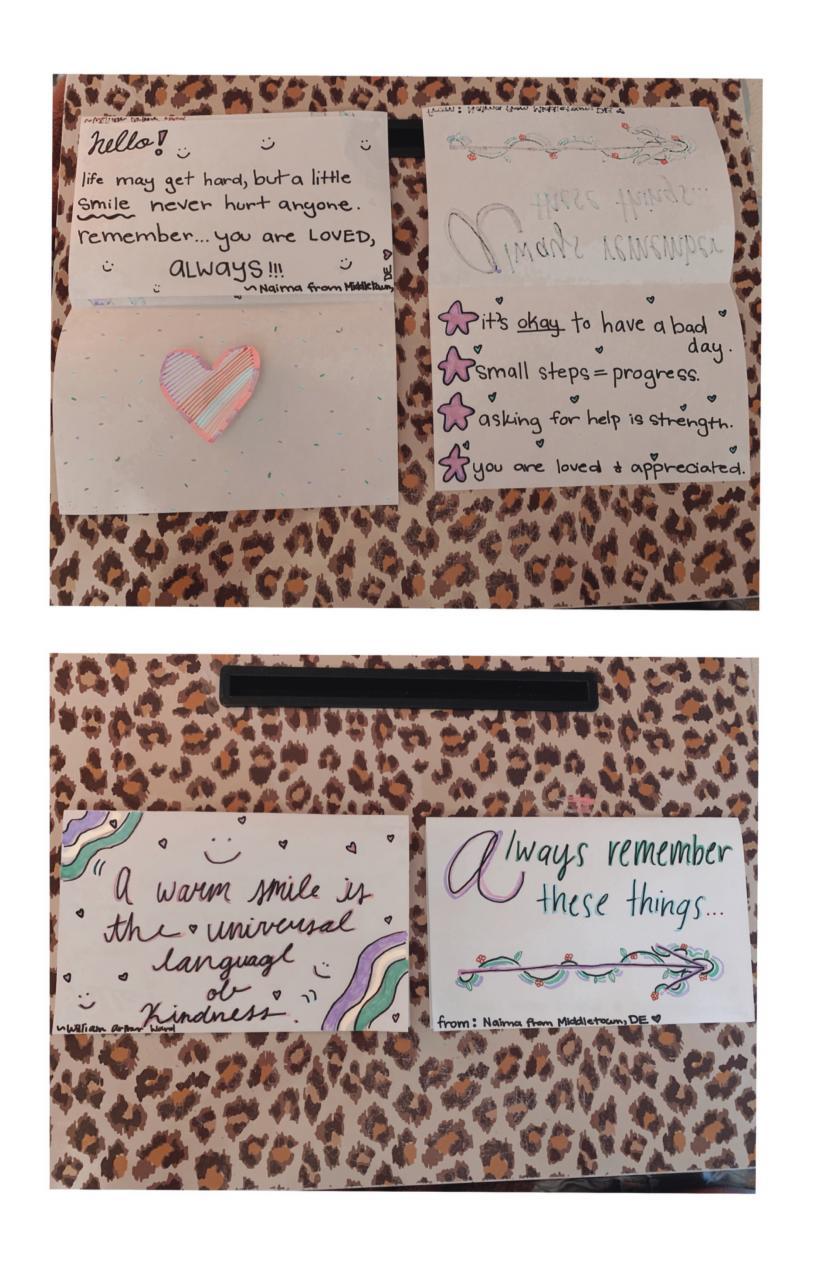 hello!
life may get hard, but a little
smile never hurt anyone.
remember... you are LOVED,
ALWAYS!!!
~Naima from Middletown, DE
from: Naima from Middletown, DE
these things...
Always remember
it's okay to have a bad
day.
small steps = progress.
asking for help is strength.
you are loved & appreciated.
"A warm smile is
the universal
language
of
kindness."
~William Arthur Ward
Always remember
these things...
from: Naima from Middletown, DE